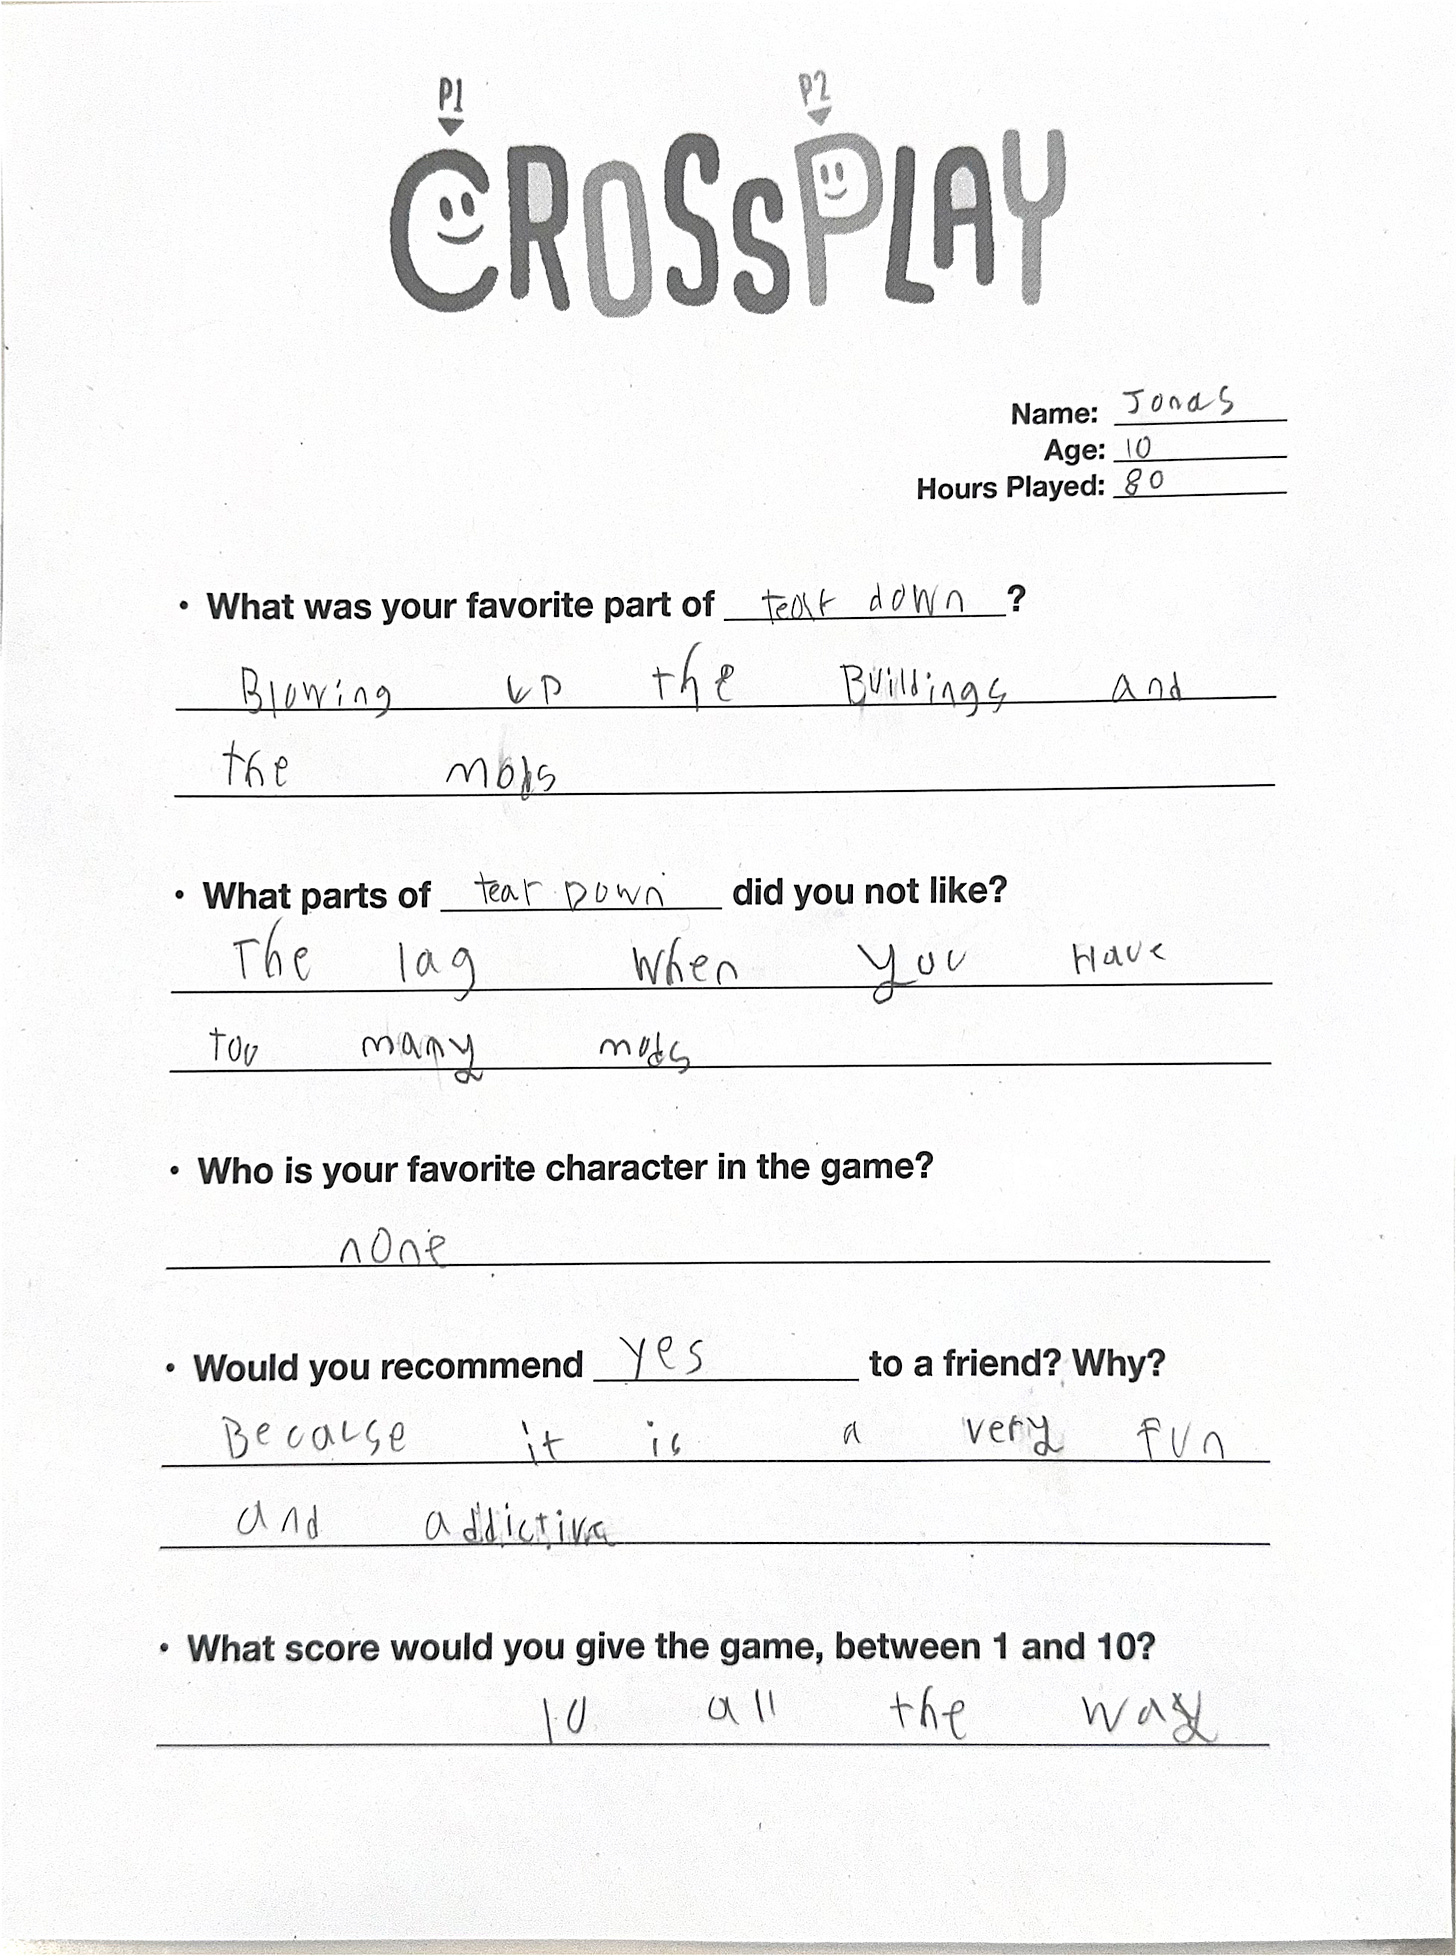 P1 P2
CROSSPLAY
Name: Jonas
Age: 10
Hours Played: 80
• What was your favorite part of tear down?
Blowing up the Buildings and
the mods
• What parts of tear Down did you not like?
The lag when you Have
too many mods
• Who is your favorite character in the game?
none
• Would you recommend yes to a friend? Why?
Because it is a very fun
and addictive
• What score would you give the game, between 1 and 10?
10 all the way